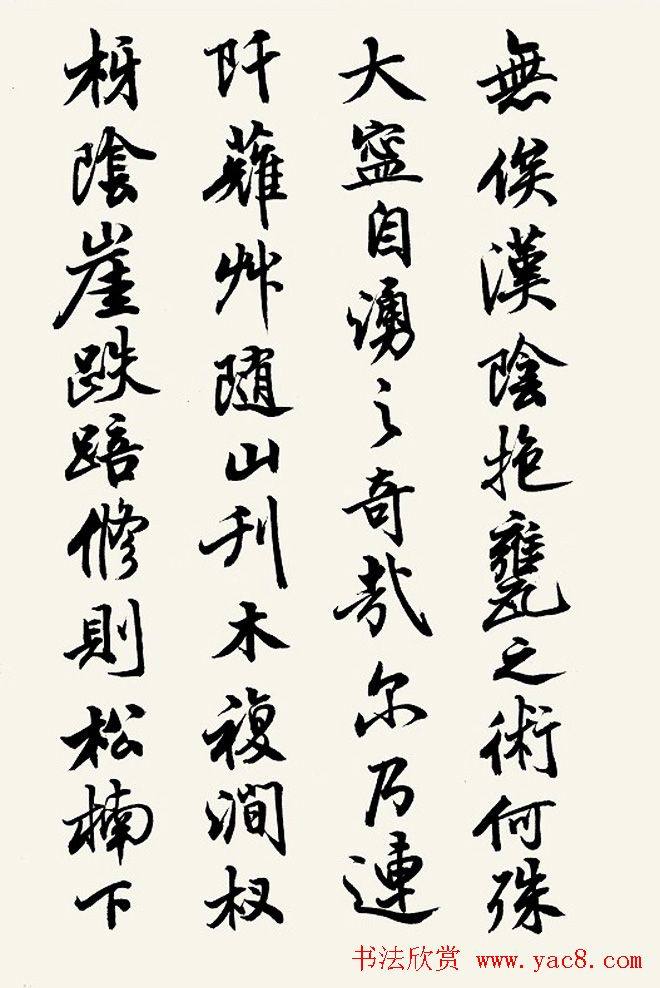 無俟漢陰抱甕之術何殊
大寍自湧之奇哉尔乃連
阡薙艸随山刋木複澗杈
枒陰崖跌踣脩則松楠下
书法欣赏 www.yac8.com